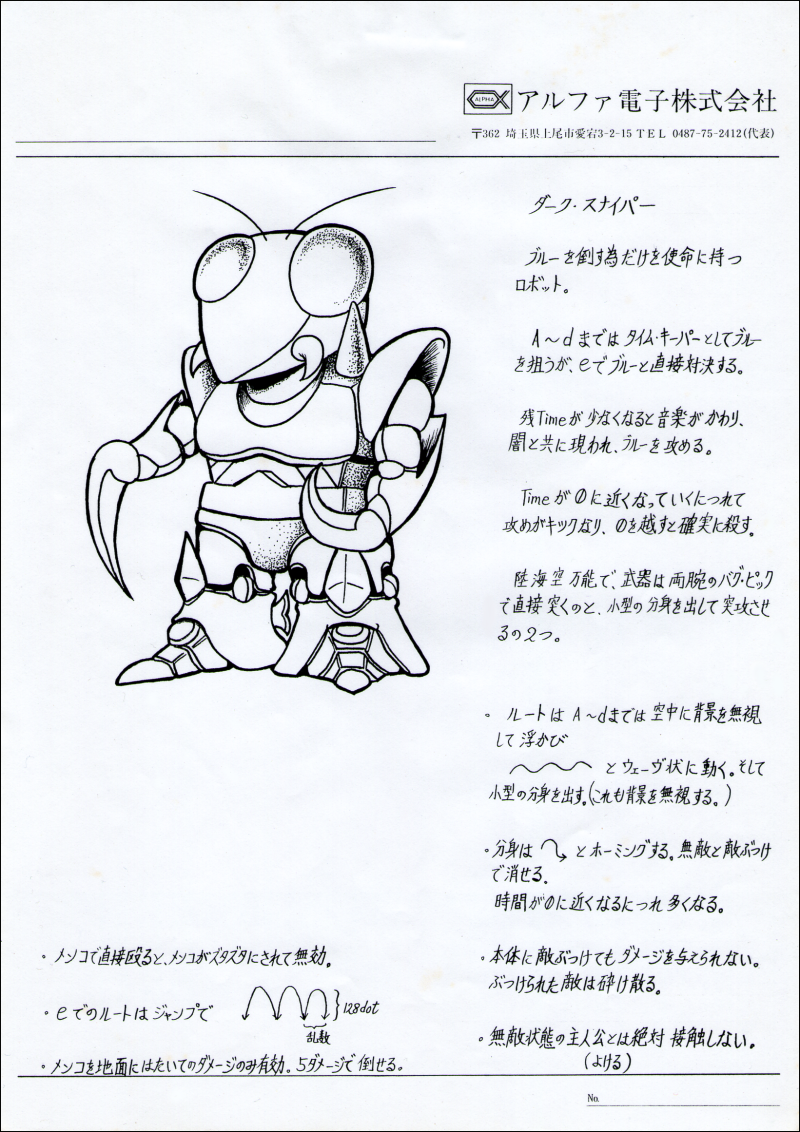 ALPHA アルファ電子株式会社
〒362 埼玉県上尾市愛宕3-2-15 TEL 0487-75-2412(代表)
ダーク・スナイパー
ブルーを倒す為だけを使命に持つ
ロボット。
A~dまでは タイム・キーパーとしてブルー
を狙うが、eでブルーと直接対決する。
残Timeが少なくなると音楽がかわり、
闇と共に現われ、ブルーを攻める。
Timeが0に近くなっていくにつれて
攻めがキツクなり、0を越すと確実に殺す。
陸海空万能で、武器は両腕のバグ・ピック
で直接突くのと、小型の分身を出して突攻させ
るの2つ。
・ ルートは A~dまでは空中に背景を無視
して浮かび
とウェーヴ状に動く。そして
小型の分身を出す。(これも背景を無視する。)
・分身は とホーミングする。無敵と敵ぶつけ
で消せる。
時間が0に近くなるにつれ多くなる。
・本体に敵ぶつけてもダメージを与えられない。
ぶつけられた敵は砕け散る。
・無敵状態の主人公とは絶対接触しない。
(よける)
・メンコで直接殴ると、メンコがズタズタにされて無効。
・eでのルートはジャンプで 128dot
乱数
・メンコを地面にはたいてのダメージのみ有効。5ダメージで倒せる。
No.